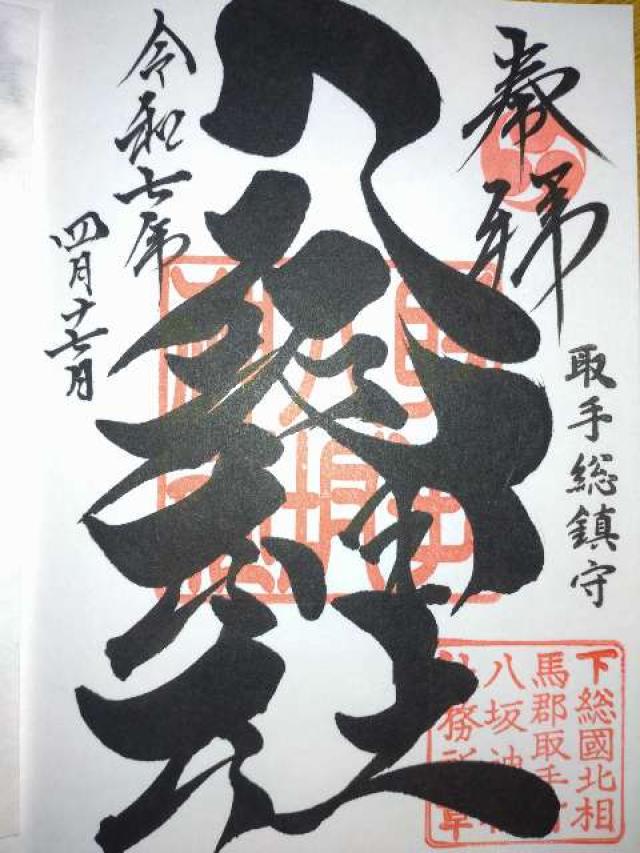 奉拝
取手総鎮守
八坂神社
令和七年
四月十七日
下総國北相
馬郡取手
八坂神
務所